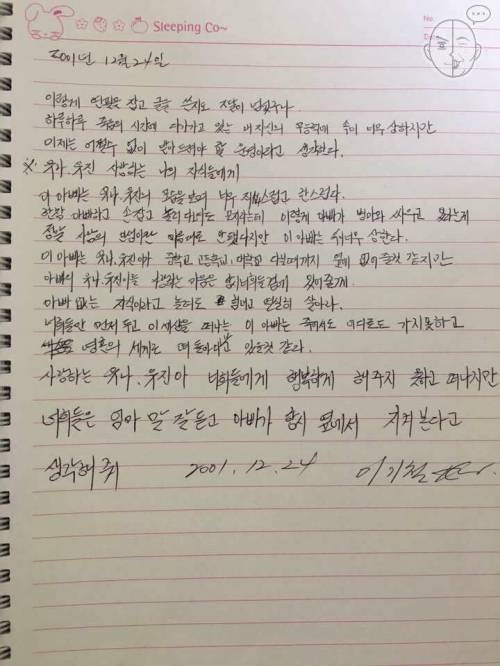 Sleeping Co~
No.
Date
2001년 12월 24일
이렇게 연필을 잡고 글을 쓴지도 구나
하루하루 죽음의 시간에 다가가고 있는 내 자신의 무능력에 속이 너무 상하지만
이제는 어쩔수 없이 받아 드려야 할 운명이라고 생각한다.
※ 유나 유진 사랑하는 나의 자식들에게
이 아빠는 유나, 유진의 모습을 보며 너무 스럽고 한스럽다.
한창 아빠하고 손잡고 놀러 다녀도 모자라는데 이렇게 아빠가 병마와 싸우고 있다는게
정말 사람의 인생이란 마음대로 안 됐다지만 이 아빠는 너무 상한다.
이 아빠는 유나, 유진이가 중학교 고등학교, 대학교 다닐때까지 옆에 없어줄것 같지만
아빠의 유나, 유진이를 사랑하는 마음은 항시 너희들곁에 있어줄게
아빠 없는 자식이라고 놀려도 힘내고 열심히 살아라.
너희들만 먼저 두고 이세상을 떠나는 이 아빠는 죽어서도 어디로도 가지못하고
영혼의 세계는 떠돌아다니고 있을것 같다.
사랑하는 유나, 유진아 너희들에게 행복하게 해주지 못하고 떠나지만
너희들은 엄마 말 잘듣고 아빠가 항시 옆에서 지켜본다고
생각해줘 2001. 12. 24 이기철